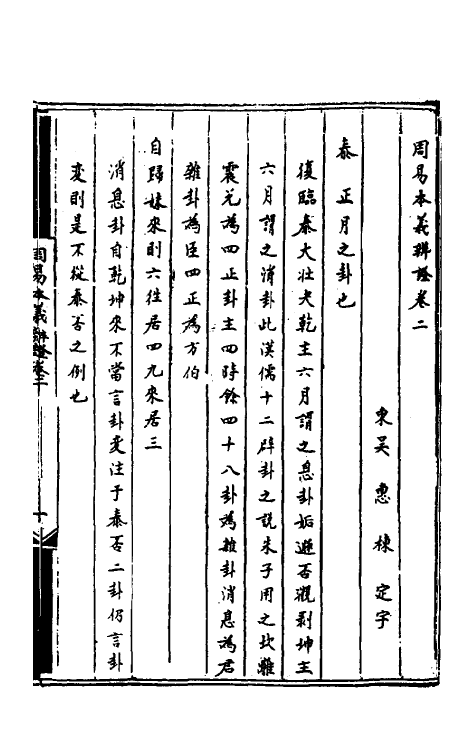 周易本義辯證卷二
東吳 惠棟 定宇
泰 正月之卦也
復臨泰大壯夬乾主六月謂之息卦姤遯否觀剥坤主
六月謂之消卦此漢儒十二辟卦之說朱子用之坎離
震兌為四正卦主四時餘四十八卦為雜卦消息為君
雜卦為臣四正為方伯
自歸妹來則六往居四九來居三
消息卦自乾坤來不當言卦变注于泰否二卦仍言卦
变則是不從泰否之例也
周易本義辨證卷二
一